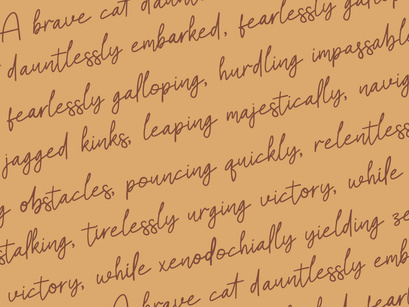 A brave cat
dauntlessly embarked, fearlessly
fearlessly galloping, hurdling
jagged kinks, leaping majestically,
obstacles, pouncing quickly,
stalking, tirelessly urging victory, while
victory, while xenodochially yielding
A brave cat dauntlessly